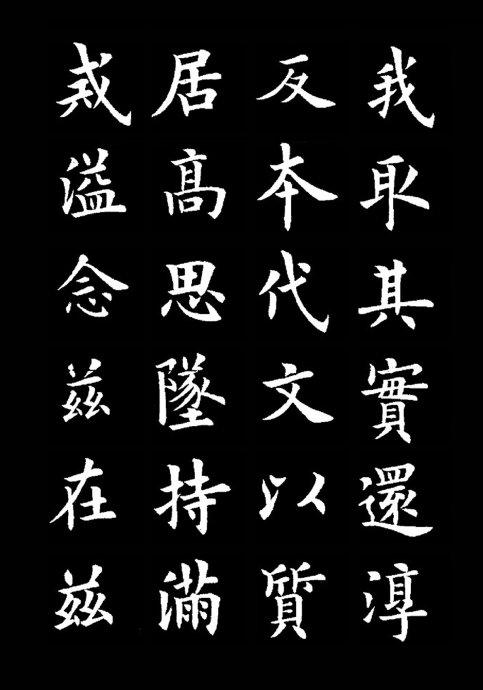 我取其實還淳
反本代文以質
居高思墜持滿
戒溢念兹在兹